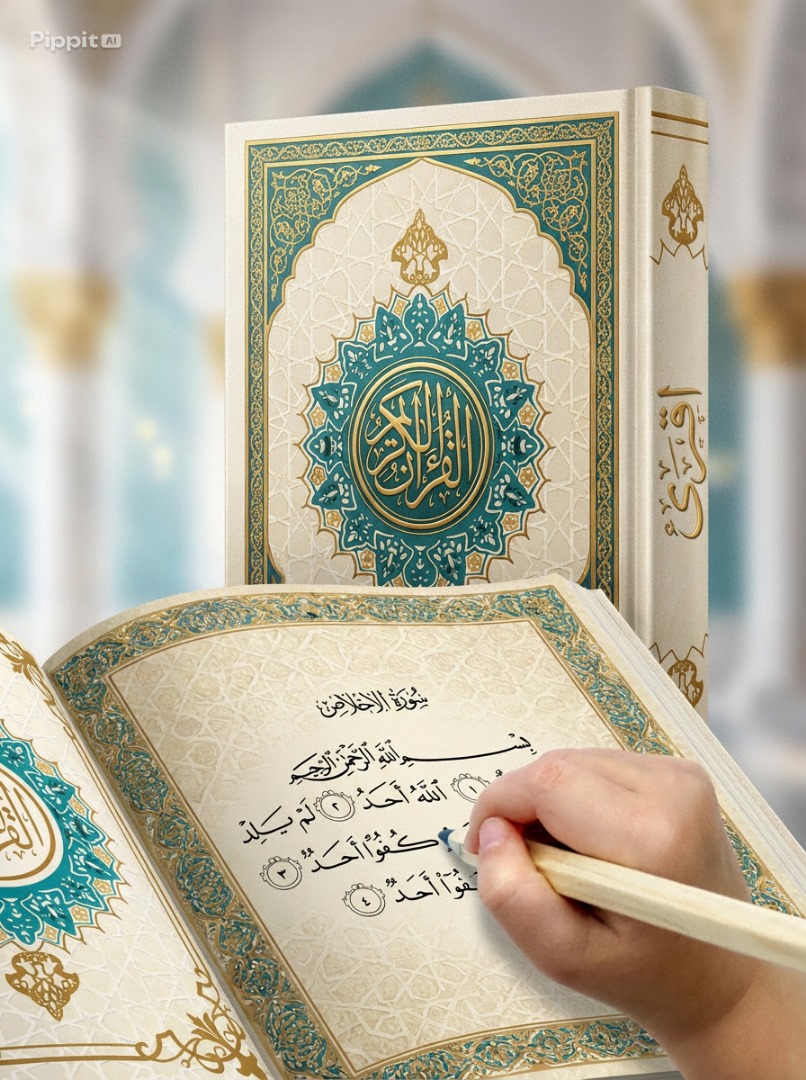 Pippit AI
القرآن الكريم
اقرئ
سُورَةُ الإخلاص
بِسْمِ اللهِ الرَّحْمَنِ الرَّحِيمِ
١ اللَّهُ أَحَدٌ ٢ لَمْ يَلِدْ
كُفُوًا أَحَدٌ ٣
كُفُوًا أَحَدٌ ٤